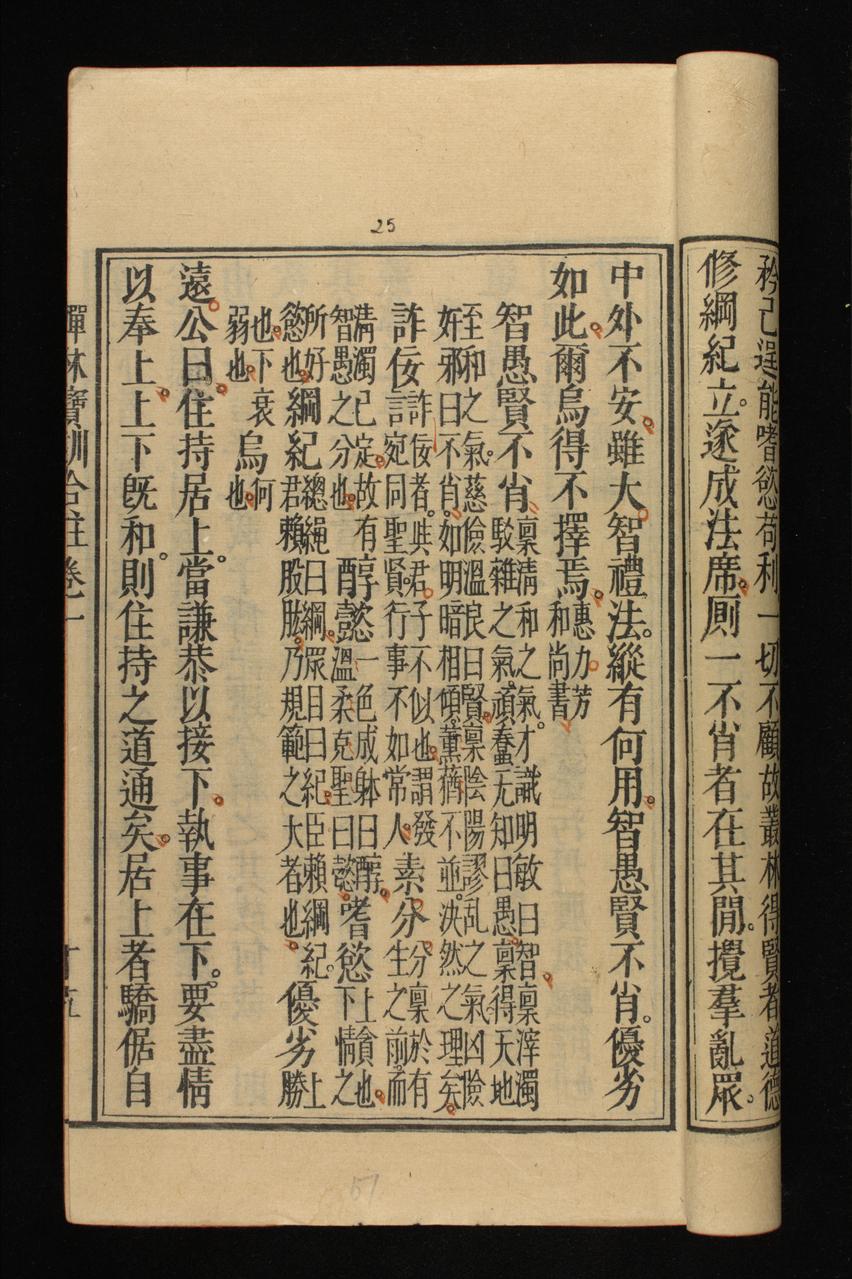 矜己逞能嗜慾苟利一切不顧故叢林得賢者道德
修綱紀立。遂成法席厠一不肖者在其閒。攪羣亂眾。
25
中外不安。雖大智禮法。縱有何用。智愚賢不肖。優劣
如此。爾烏得不擇焉。
惠力芳
和尚書
智愚賢不肖
稟清和之氣。才識明敏曰智。稟滓濁
駁雜之氣。頑蠢无知曰愚。稟得天地
至和之氣。慈儉溫良曰賢。稟陰陽謬乱之氣凶險
奸邪曰不肖。如明暗相傾。薰蕕不並。決然之理矣。
詐佞
詐佞者。與君子不似也。謂發
言宛同聖賢。行事不如常人。
素分
分稟於有
生之前。而
清濁已定。故有
智愚之分也。
醇懿
一色成躰曰醇。
溫柔克聖曰懿。
嗜慾
上貪也。
下情之
所好
慾也。
綱紀
總繩曰綱。眾目曰紀。臣賴綱紀。
君賴股肱。乃規範之大者也。
優劣
上
勝
也。下衰
弱也。
烏
何
也。
遠。公曰。住持居上。當謙恭以接下。執事在下。要盡情
以奉上。上下既和。則住持之道通矣。居上者驕倨自
禪林寶訓合註卷一
十五
57